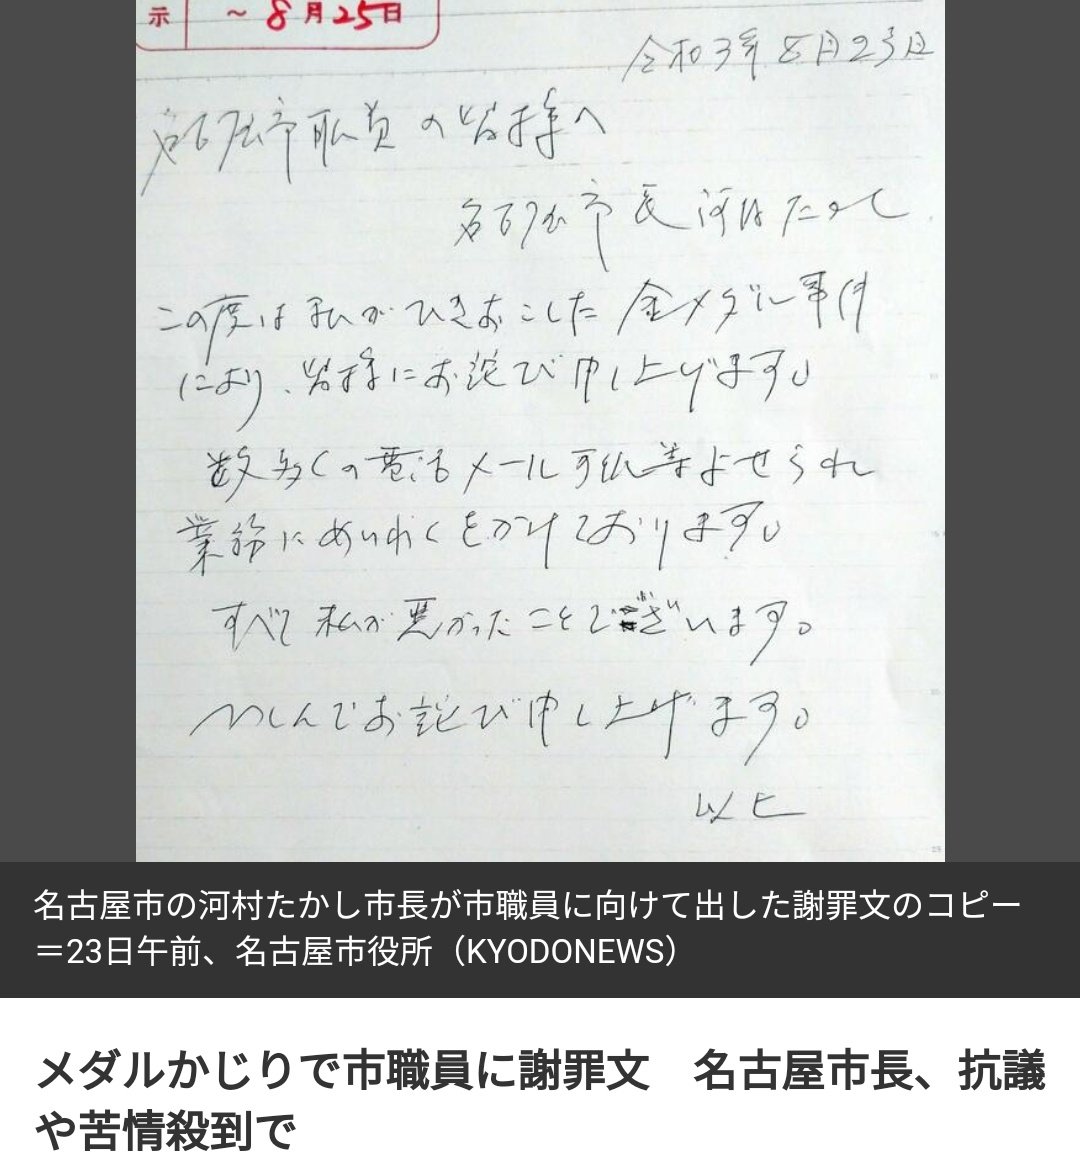 示 ~8月25日
令和3年8月23日
名古屋市職員の皆様へ
名古屋市長 河村たかし
この度は私がひきおこした金メダル事件
により、皆様にお詫び申し上げます。
数多くの電話メール手紙等よせられ
業務にめいわくをかけております。
すべて私が悪かったことでございます。
つつしんでお詫び申し上げます。
以上
名古屋市の河村たかし市長が市職員に向けて出した謝罪文のコピー
＝23日午前、名古屋市役所（KYODONEWS）
メダルかじりで市職員に謝罪文　名古屋市長、抗議
や苦情殺到で